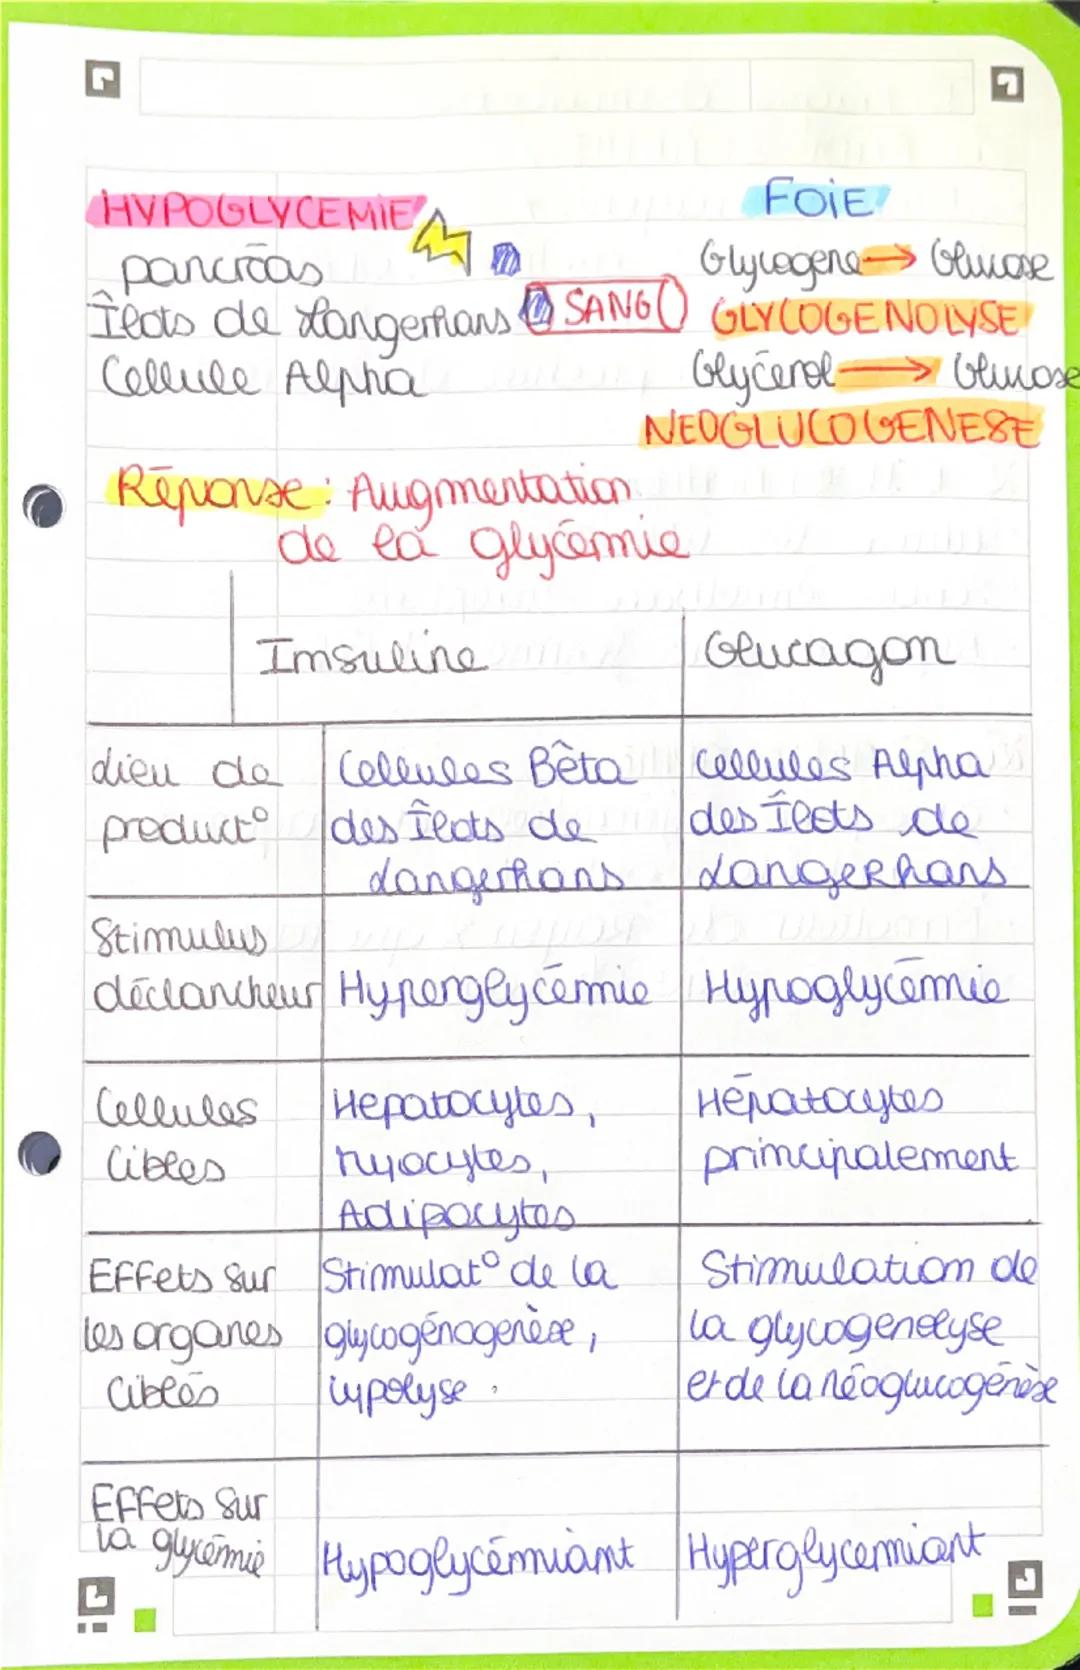 HYPOGLYCEMIE
pancréas
Îlots de Langerhans
Cellule Alpha
SANG
FOIE
Glycogene → Glucose
GLYCOGENOLYSE
Glycérol → Glucose
NEOGLUCOGENESE
Réponse : Augmentation
de la glycémie
Insuline
Glucagon
Lieu de
product°
Cellules Bêta
des Îlots de
Langerhans
Cellules Alpha
des Îlots de
Langerhans
Stimulus
déclancheur
Hyperglycémie
Hypoglycémie
Cellules
Cibles
Hepatocytes,
Myocytes,
Adipocytes
Hépatocytes
principalement
Effets sur
les organes
Ciblés
Stimulat° de la
glycogénogenèse,
lypolyse.
Stimulation de
la glycogenolyse
et de la néoglucogénèse
Effets sur
la glycémie
Hypoglycémiant
Hyperglycemiant